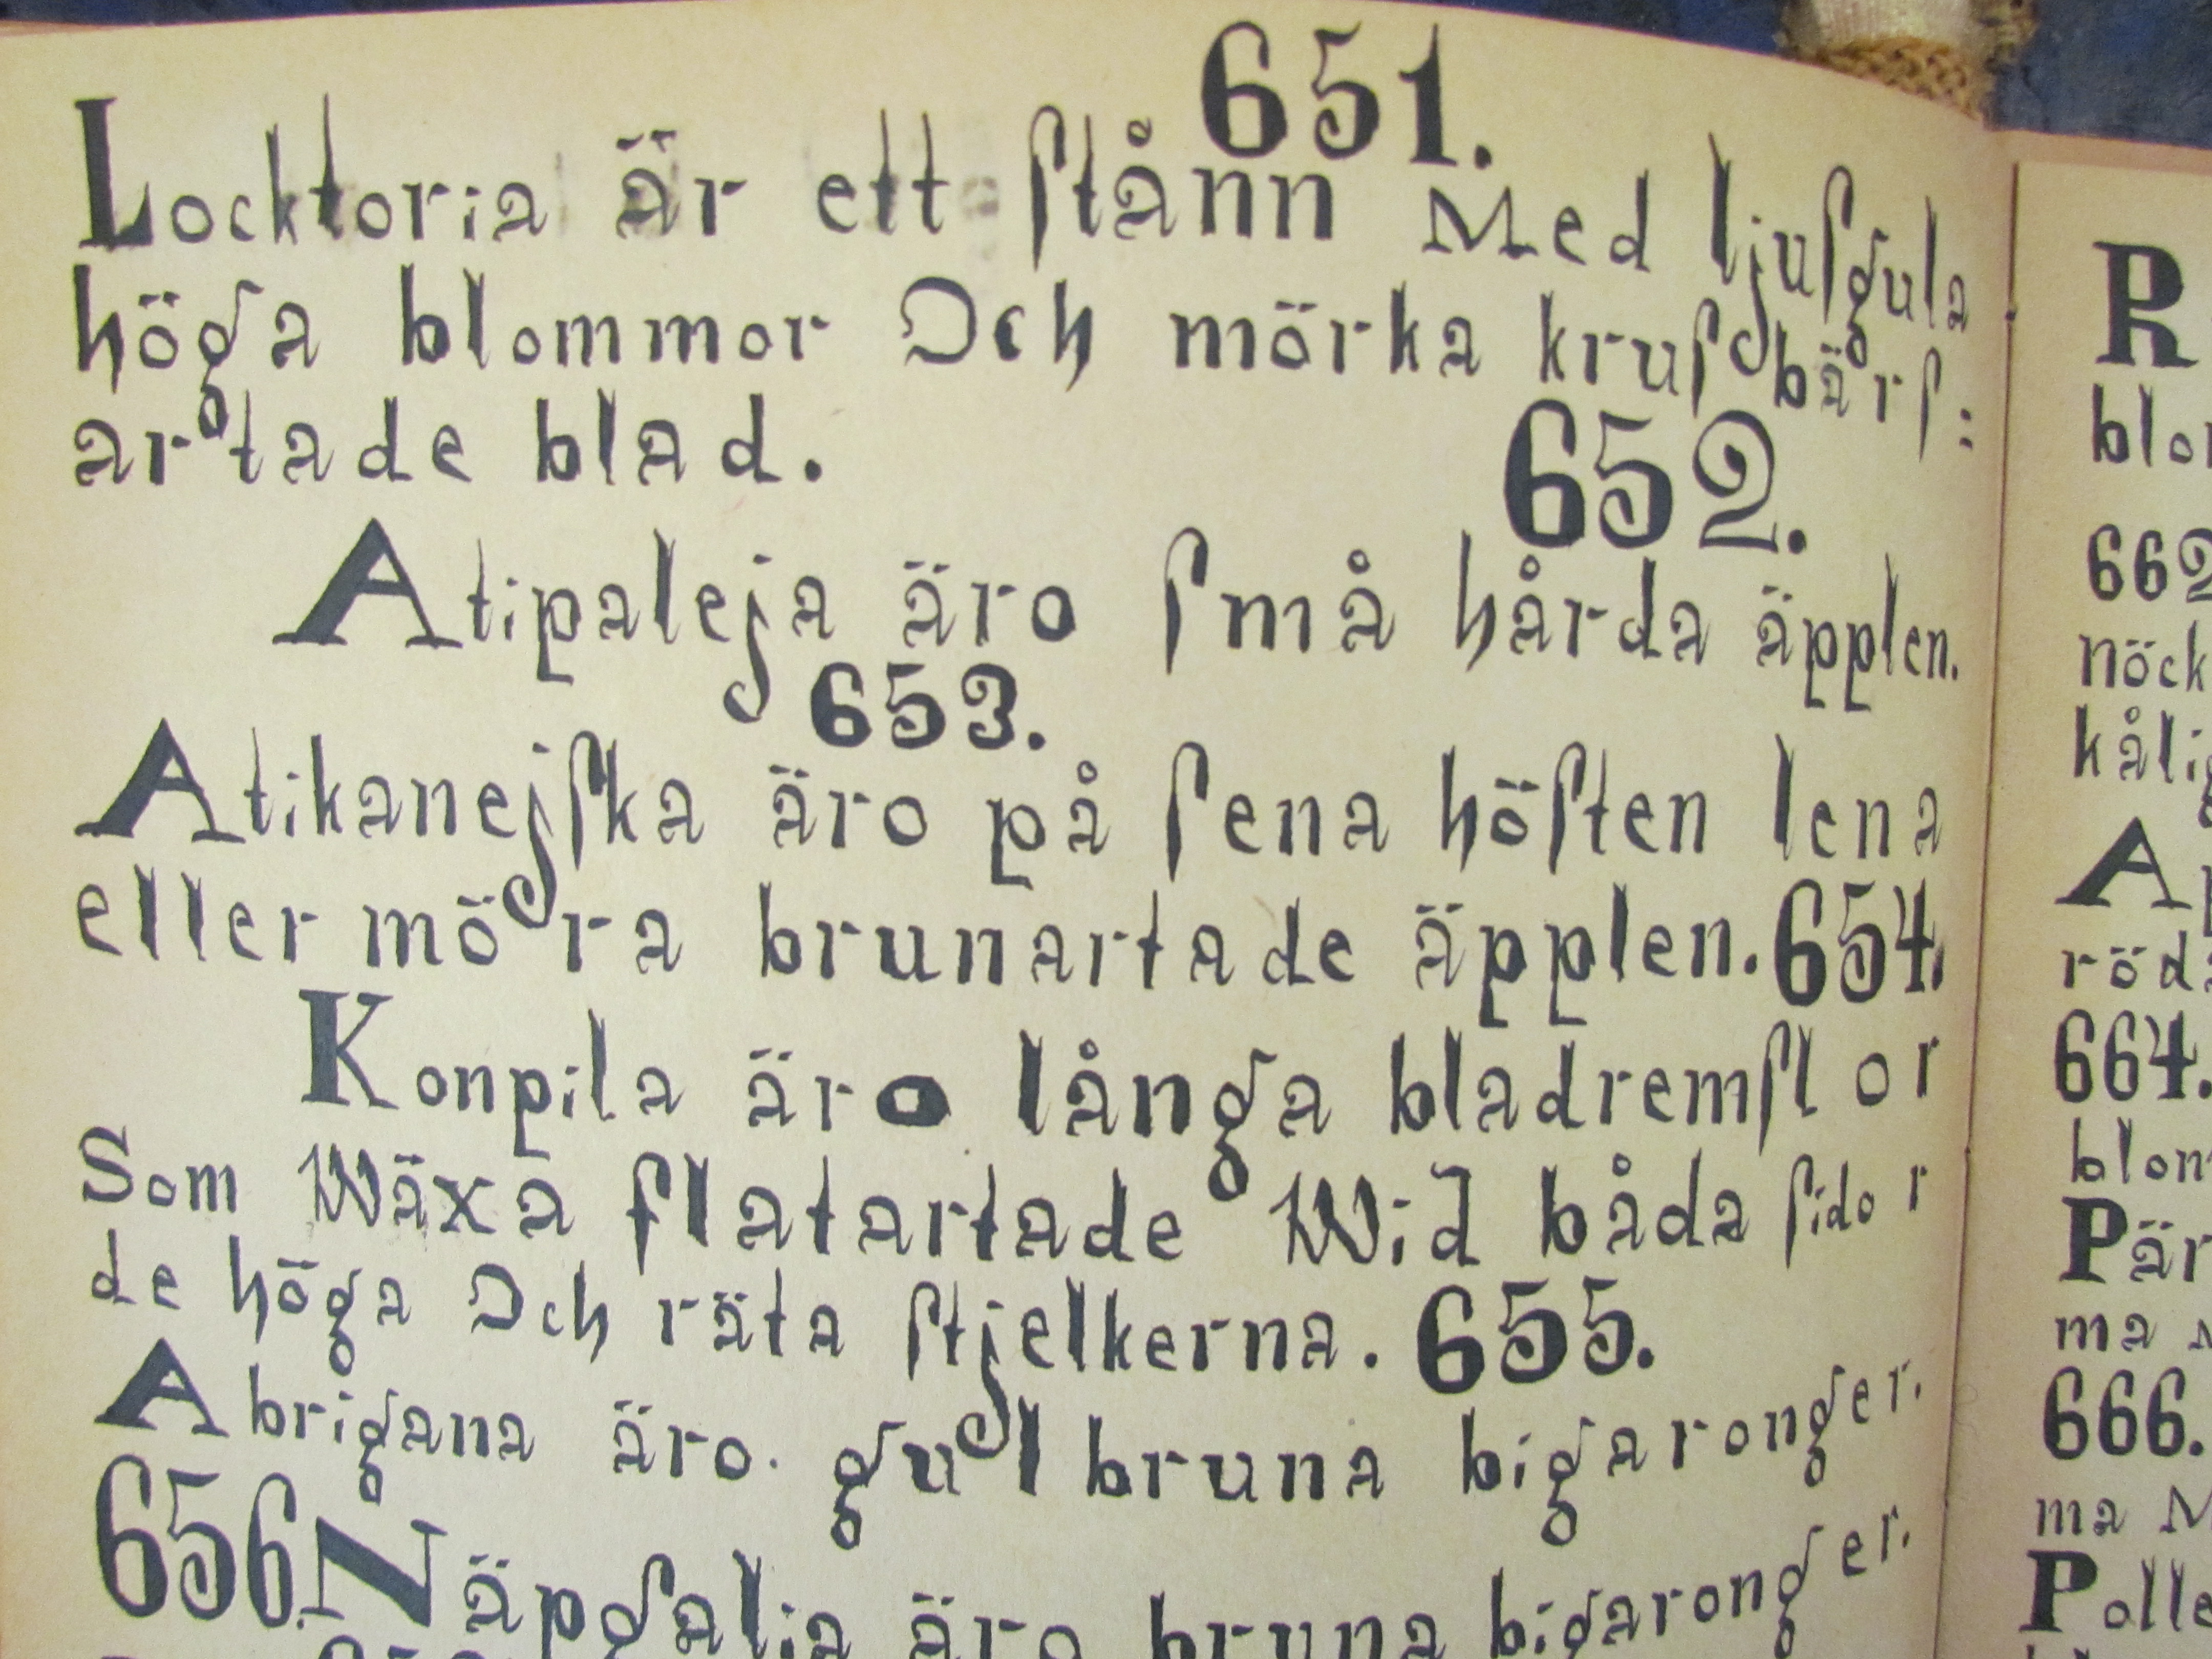 651.
Locktoria är ett ſtånn Med ljuſgula
höga blommor Och mörka kruſbärſ:
artade blad.
652.
Atipaleja äro ſmå hårda äpplen.
653.
Atikanejſka äro på ſena höſten lena
eller möra brunartade äpplen. 654.
Konpila äro långa bladremſlor
Som Wäxa flatartade Wid båda ſidor
de höga Och räta ſtjelkerna. 655.
Abrigana äro. gulbruna bigaronger.
656. Näpgalia äro bruna bigaronger.
R
blo
662
nöck
kåli
A
röd
664.
blom
Pär
ma
666.
ma M
Polle